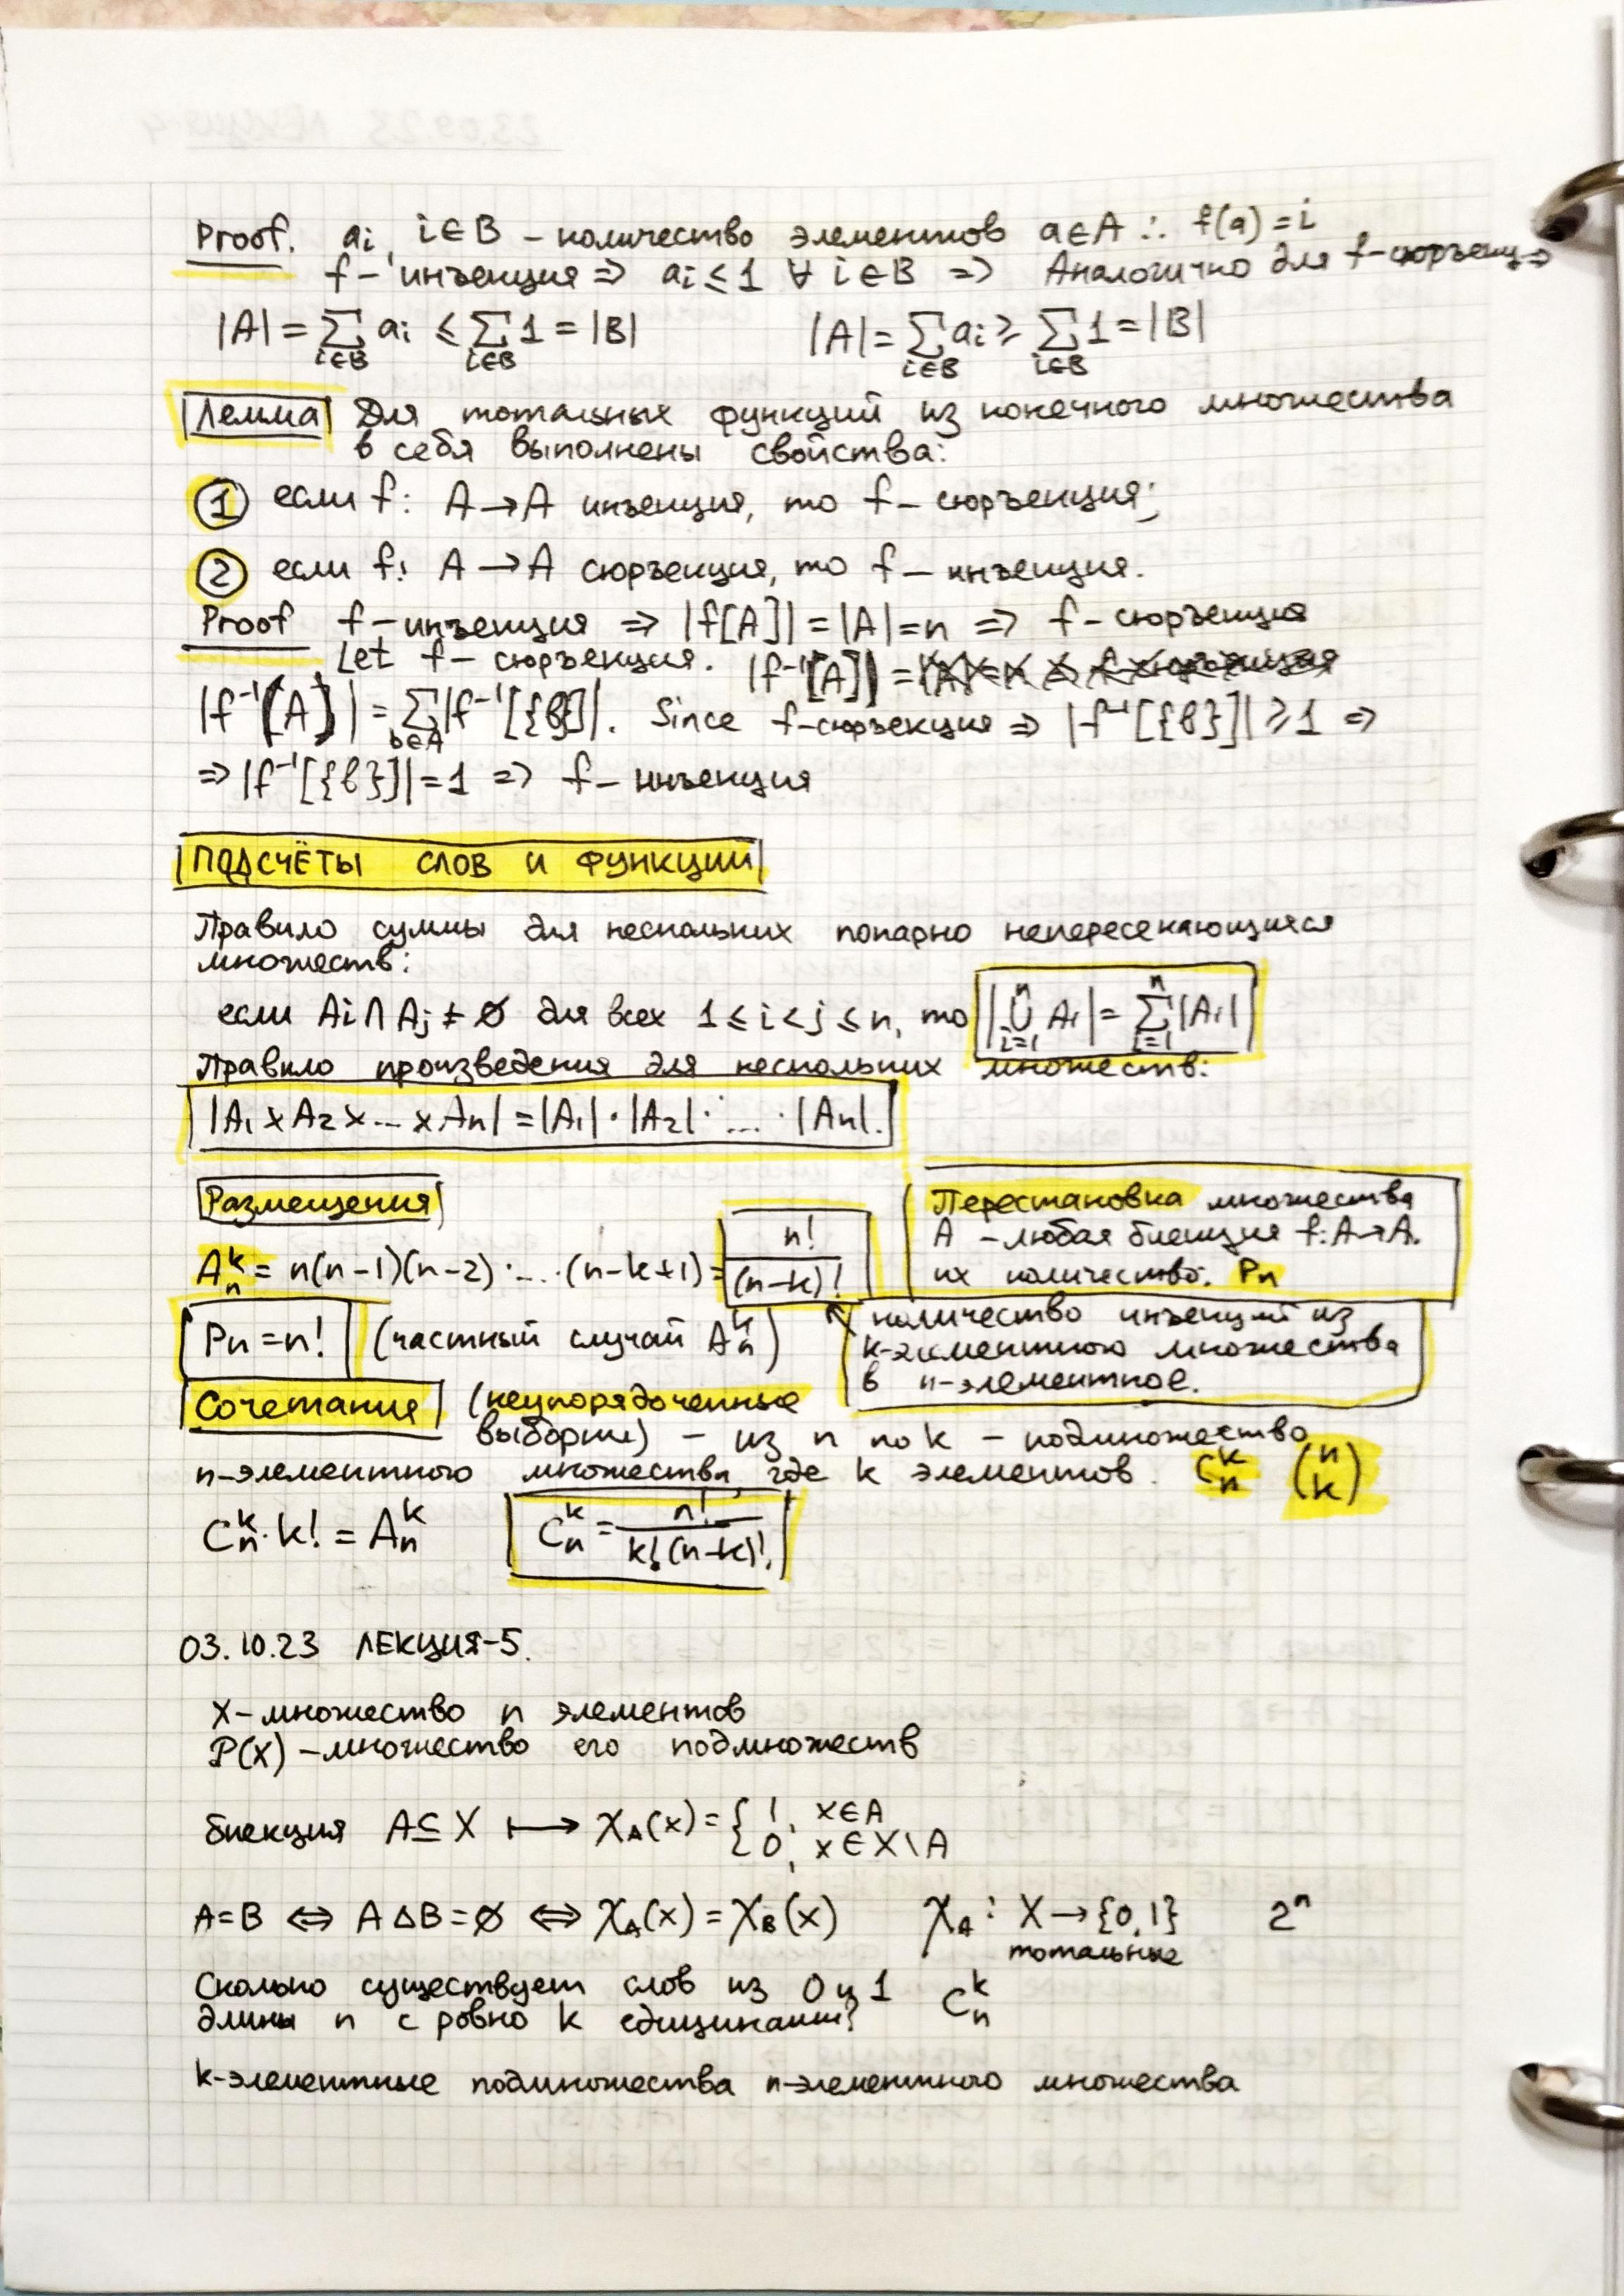 Proof. aᵢ, i∈B – количество элементов a∈A ∴ f(a)=i
f – инъекция ⇒ aᵢ ≤ 1 ∀ i∈B ⇒ Аналогично для f-сюръекц ⇒
|A| = ∑_{i∈B} aᵢ ≤ ∑_{i∈B} 1 = |B| |A| = ∑_{i∈B} aᵢ ≥ ∑_{i∈B} 1 = |B|
Лемма Для тотальных функций из конечного множества
в себя выполнены свойства:
① если f: A→A инъекция, то f – сюръекция;
② если f: A→A сюръекция, то f – инъекция.
Proof f – инъекция ⇒ |f[A]| = |A| = n ⇒ f – сюръекция
Let f – сюръекция. |f⁻¹[A]| =
|f⁻¹[A]| = ∑_{b∈A} |f⁻¹[{b}]|. Since f-сюръекция ⇒ |f⁻¹[{b}]| ≥ 1 ⇒
⇒ |f⁻¹[{b}]| = 1 ⇒ f – инъекция
ПОДСЧЁТЫ СЛОВ И ФУНКЦИИ
Правило суммы для нескольких попарно непересекающихся
множеств:
если Aᵢ ∩ Aⱼ ≠ ∅ для всех 1 ≤ i < j ≤ n, то |⋃_{i=1}^{n} Aᵢ| = ∑_{i=1}^{n} |Aᵢ|
Правило произведения для нескольких множеств:
|A₁ × A₂ × ... × Aₙ| = |A₁| · |A₂| · ... · |Aₙ|.
Размещения
A_n^k = n(n-1)(n-2) · ... · (n-k+1) = n!/(n-k)!
Перестановка множества
A – любая биекция f: A→A.
их количество: Pₙ
Pₙ = n! (частный случай A_n^k)
количество инъекций из
k-элементного множества
в n-элементное.
Сочетания (неупорядоченные
выборки) – из n по k – подмножество
n-элементного множества, где k элементов. C_n^k (n k)
C_n^k · k! = A_n^k C_n^k = n!/(k!(n-k)!)
03.10.23 ЛЕКЦИЯ-5.
X – множество n элементов
P(X) – множество его подмножеств
биекция A⊆X ⟼ χ_A(x) = { 1, x∈A
{ 0, x∈X\A
A=B ⇔ A△B=∅ ⇔ χ_A(x) = χ_B(x) χ_A : X→{0,1} 2ⁿ
тотальные
Сколько существует слов из 0 и 1 C_n^k
длины n с ровно k единицами?
k-элементные подмножества n-элементного множества